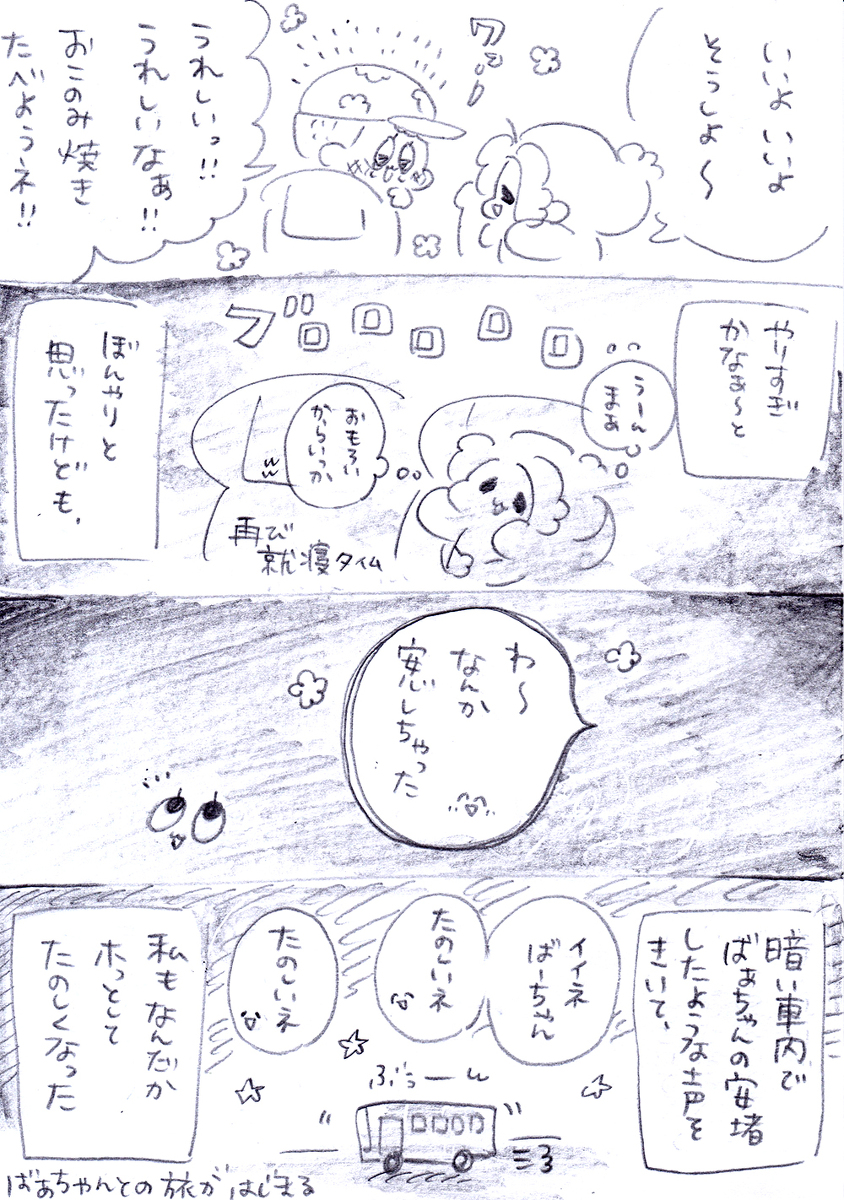 いいよ いいよ
そうしよ〜
うれしいっ!!
うれしいなぁ!!
おこのみ焼き
たべようネ!!
やりすぎ
かなぁ〜と
うーん
まぁ
ブロロロロロ
おもろい
からいっか
再び
就寝タイム
ぼんやりと
思ったけども、
わ〜
なんか
安心しちゃった
暗い車内で
ばぁちゃんの安堵
したような声を
きいて、
イイネ
ばーちゃん
たのしいネ
たのしいネ
ぶぅーん
私もなんだか
ホっとして
たのしくなった
ばぁちゃんとの旅がはじまる